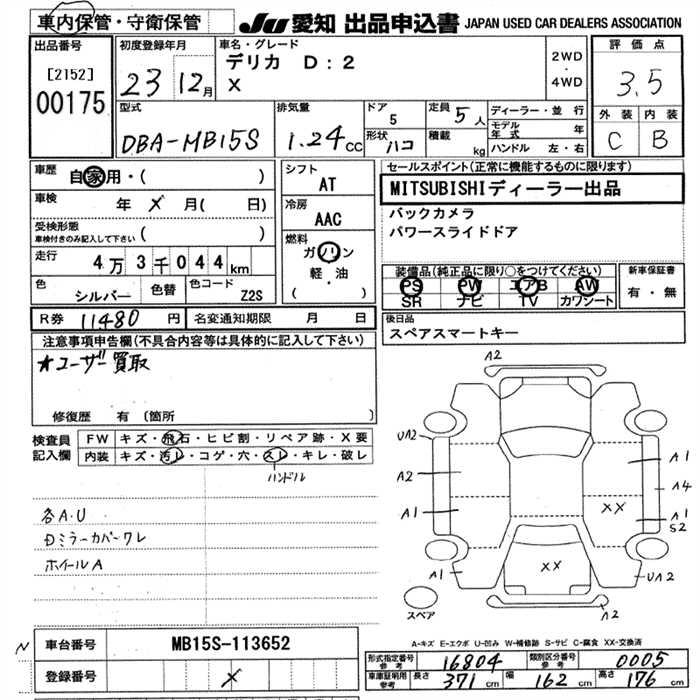 車内保管・守衛保管
JU 愛知 出品申込書 JAPAN USED CAR DEALERS ASSOCIATION
出品番号
[2152]
00175
初度登録年月
23 12月
車名・グレード
デリカ D:2
X
2WD
・
4WD
評価点
3.5
外装 内装
C B
型式
DBA-MB15S
排気量
1.24 CC
ドア
5
定員 5 人
形状 ハコ
積載 kg
ディーラー・並行
モデル年式 年
ハンドル 左・右
車歴
自家用・( )
車検 年 メ 月( 日)
受検形態
車検付きのみ記入して下さい ( )
走行 4万3千044km
色 シルバー
色替
色コード Z2S
シフト
AT
冷房
AAC
燃料
ガソリン
軽・油
( )
セールスポイント(正常に機能するものに限ります)
MITSUBISHIディーラー出品
バックカメラ
パワースライドドア
装備品(純正品に限り○をつけてください)
PS PW エアB AW
SR ナビ TV カワシート
新車保証書
有・無
R券 11480 円
名変通知期限 月 日
後日品
スペアスマートキー
注意事項申告欄(不具合内容等は具体的に記入して下さい)
★ユーザー買取
修復歴 有 (箇所 )
検査員
記入欄
FW キズ・飛石・ヒビ割・リペア跡・X要
内装 キズ・汚レ・コゲ・穴・スレ・キレ・破レ
ハンドル
各A.U
Dミラーカバーワレ
ホイールA
A2
UA2
A2
A1
A1
A1
A4
A1
S2
XX
XX
UA2
A2
スペア
A-キズ E-エクボ U-凹み W-補修跡 S-サビ C-腐食 XX-交換済
N
車台番号 MB15S-113652
登録番号 メ
形式指定番号
参考
16804
類別区分番号
参考
0005
車庫証明用
参考
長さ 371 cm
幅 162 cm
高さ 176 cm